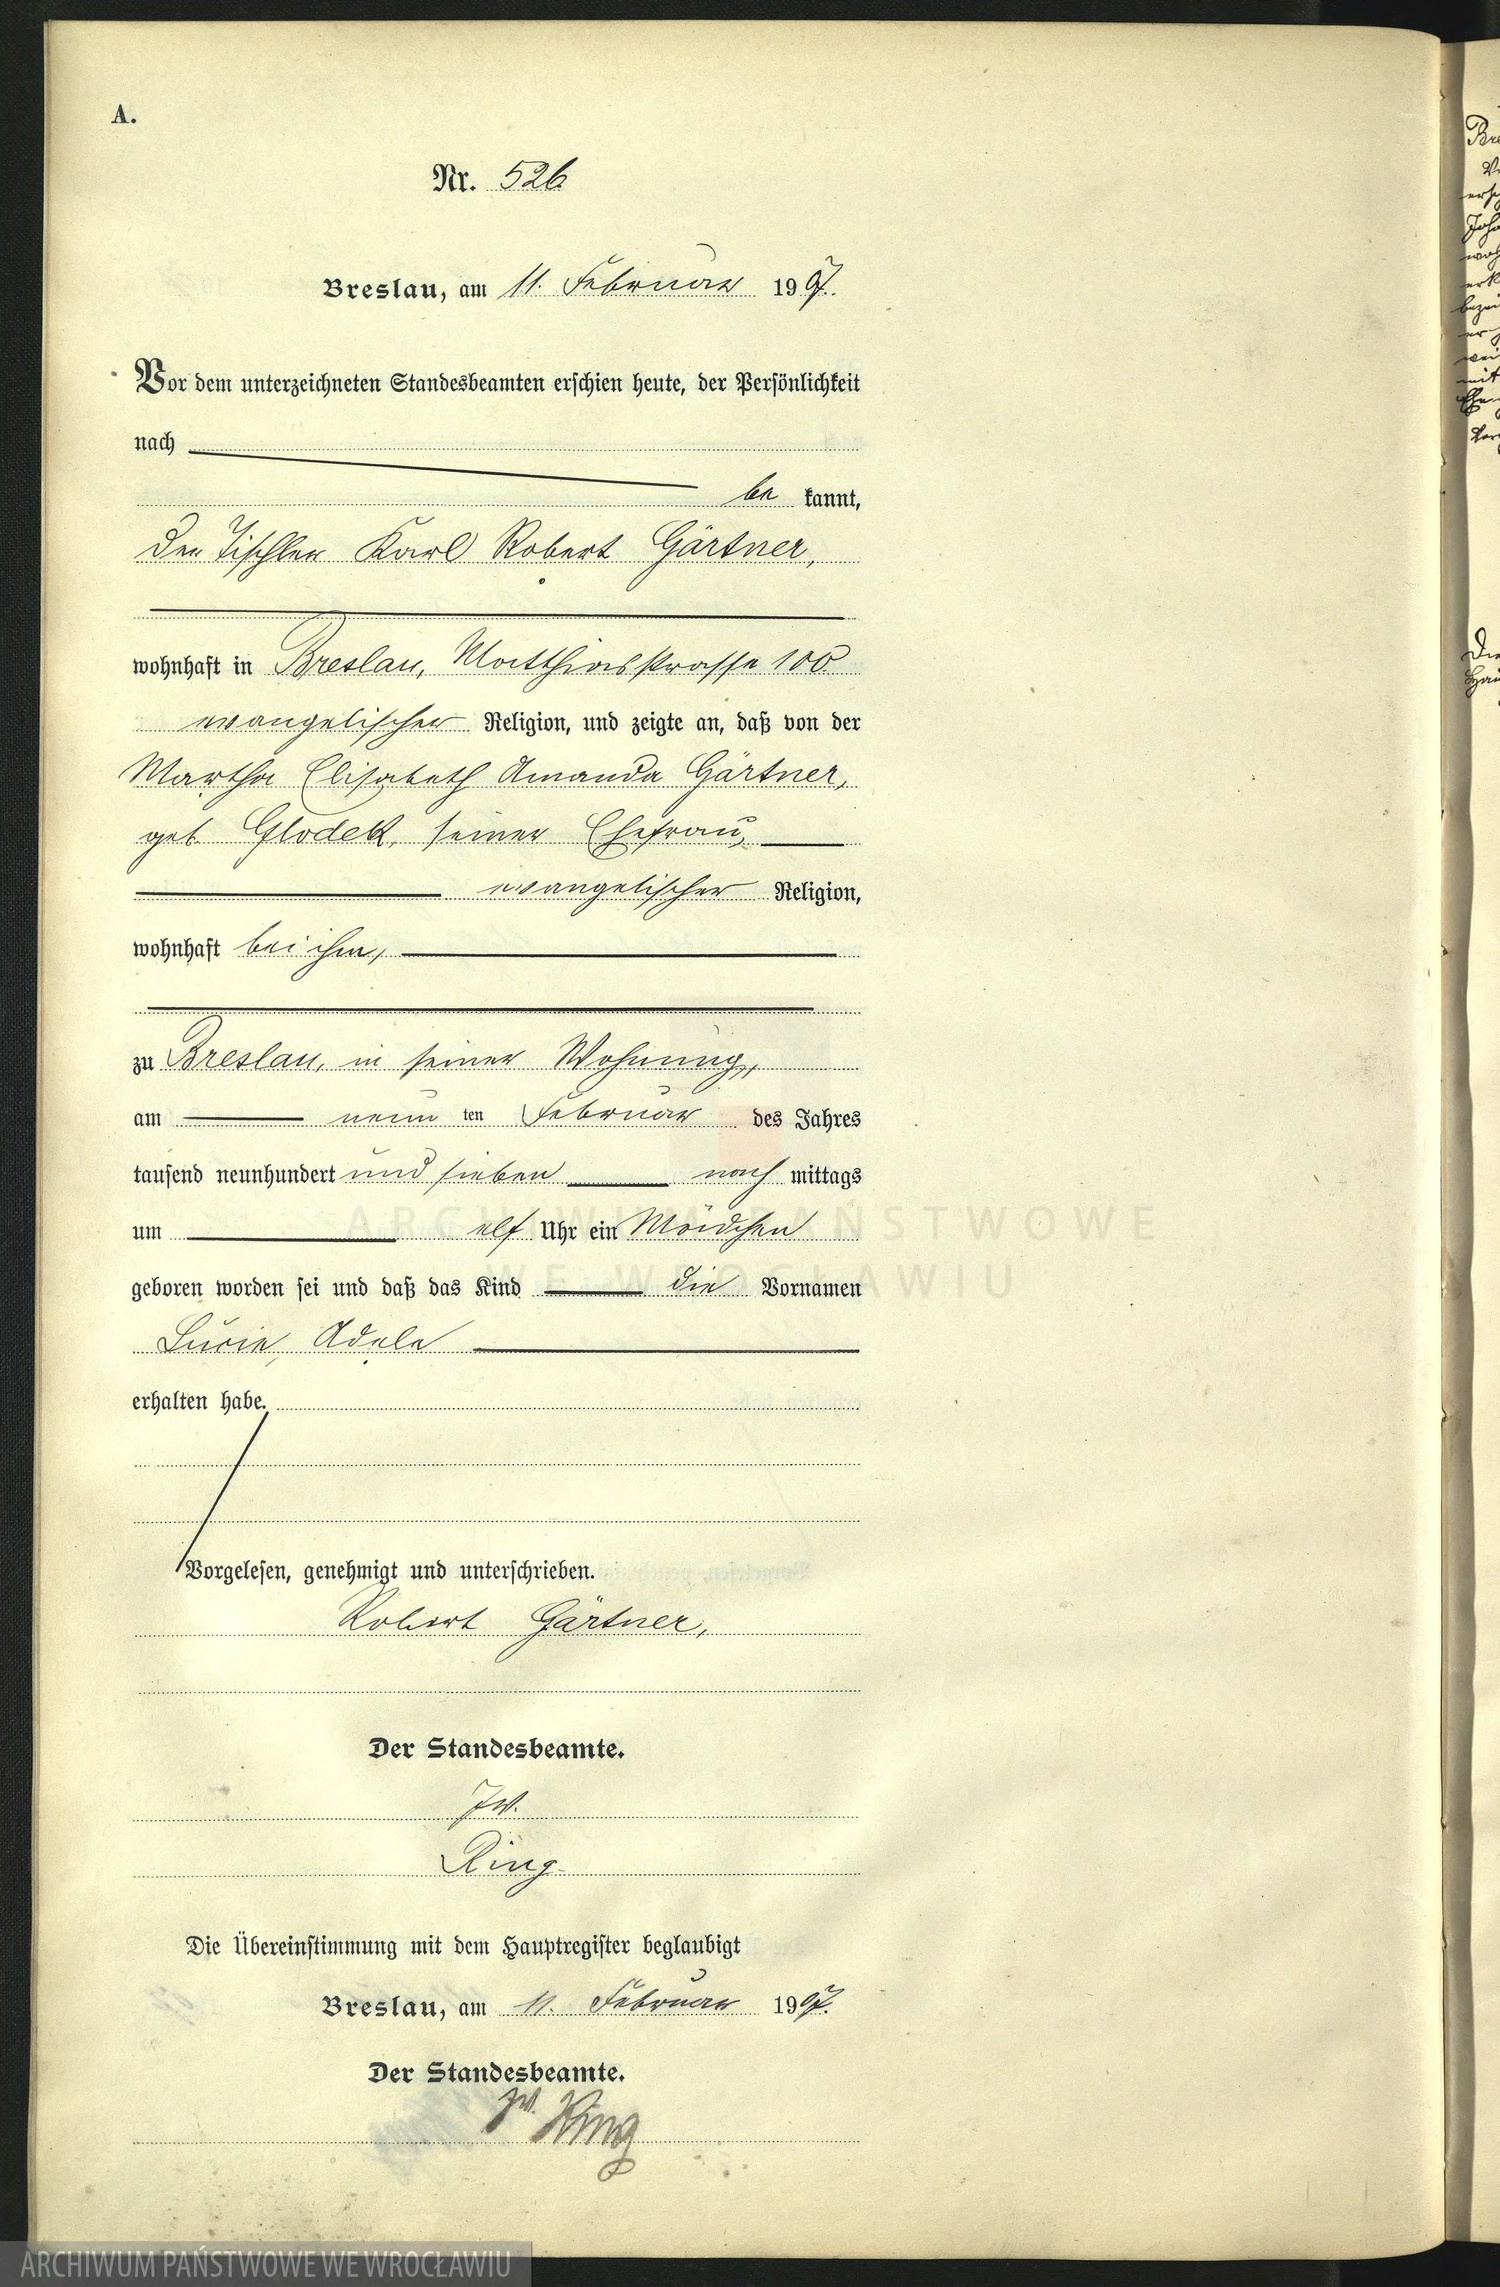 A.
Nr. 526
Breslau, am 11. Februar 1907.
Vor dem unterzeichneten Standesbeamten erschien heute, der Persönlichkeit
nach
be kannt,
der Tischler Karl Robert Gärtner,
wohnhaft in Breslau, Matthiasstrasse 100
evangelischer Religion, und zeigte an, daß von der
Martha Elisabeth Amanda Gärtner,
geb. Glodek, seiner Ehefrau,
evangelischer Religion,
wohnhaft bei ihm,
zu Breslau, in seiner Wohnung,
am neun ten Februar des Jahres
tausend neunhundert und sieben nach mittags
um elf Uhr ein Mädchen
geboren worden sei und daß das Kind die Vornamen
Lucie, Adele
erhalten habe.
Vorgelesen, genehmigt und unterschrieben.
Robert Gärtner,
Der Standesbeamte.
Jv.
Ring
Die Übereinstimmung mit dem Hauptregister beglaubigt
Breslau, am 11. Februar 1907.
Der Standesbeamte.
Jv. Ring
ARCHIWUM PAŃSTWOWE
WE WROCŁAWIU
ARCHIWUM PAŃSTWOWE WE WROCŁAWIU